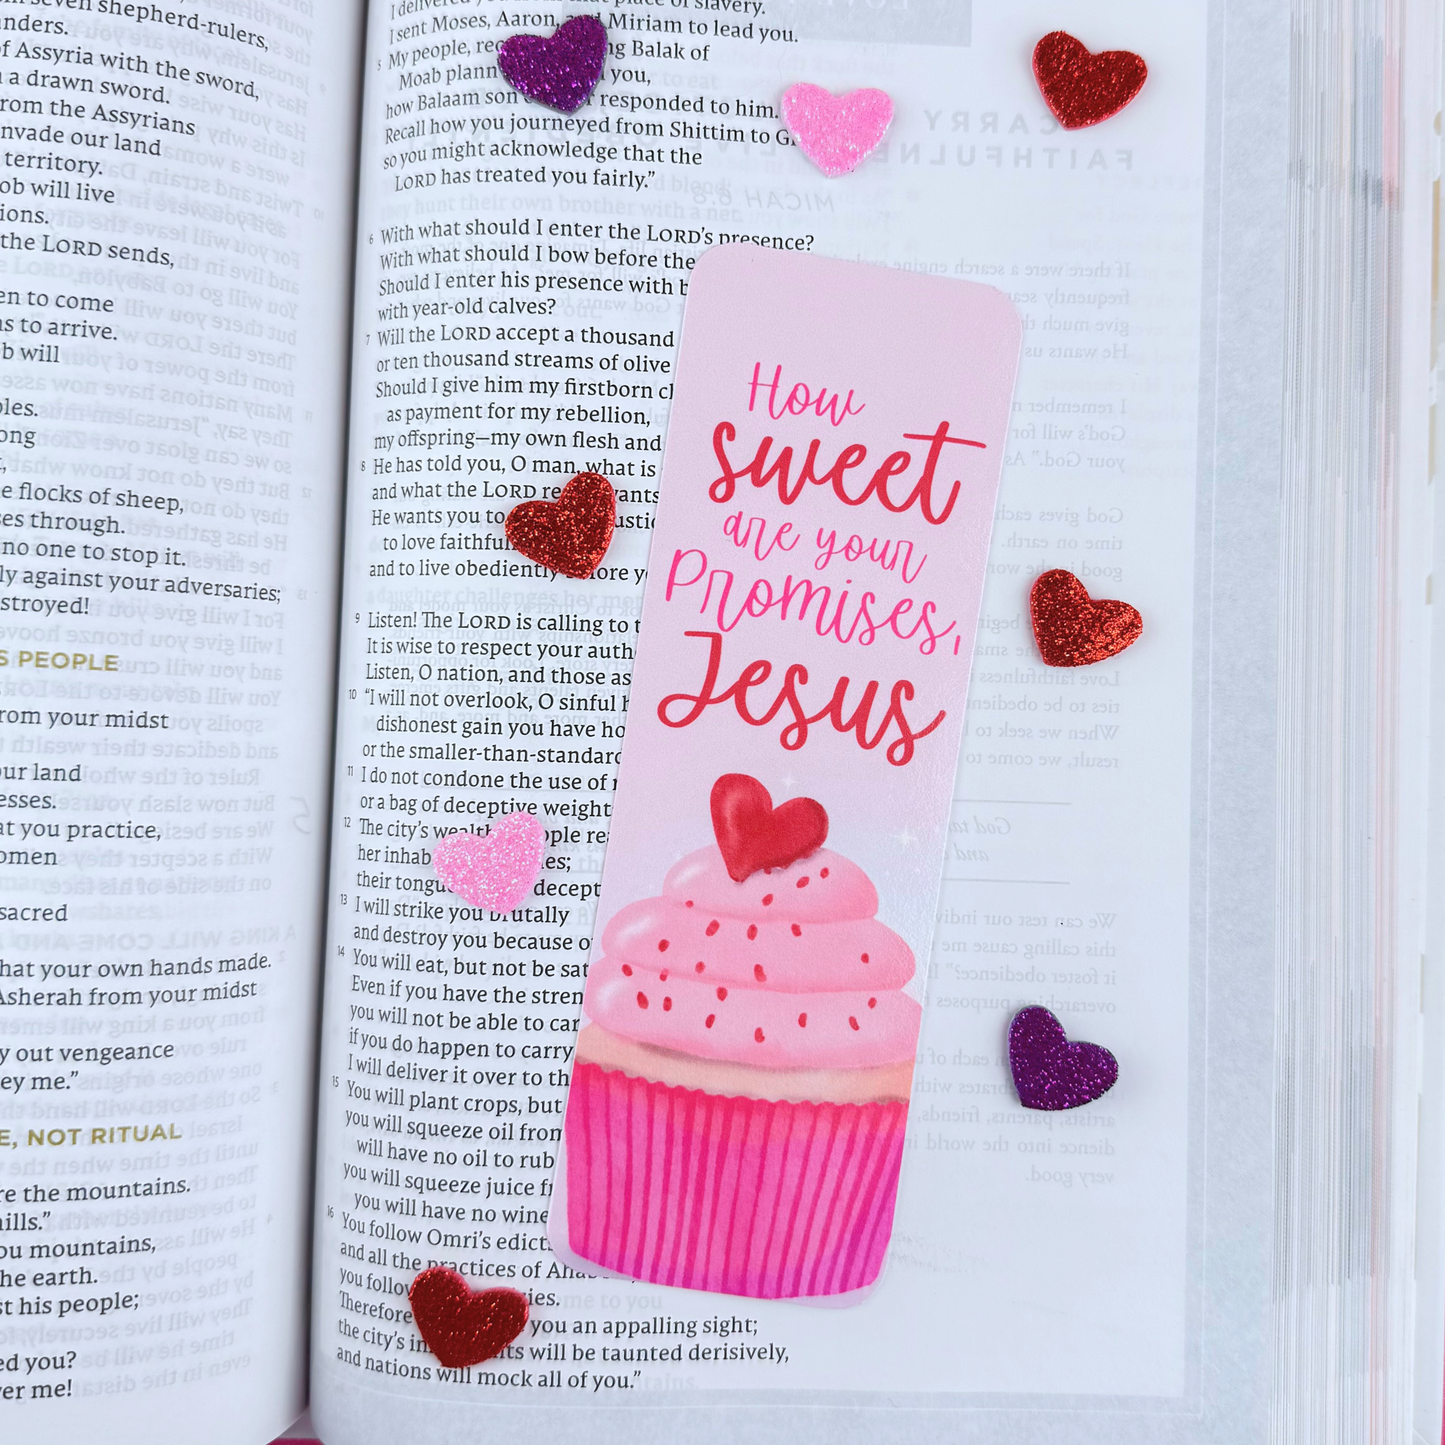 seven shepherd-rulers,
of Assyria with the sword,
a drawn sword.
rom the Assyrians
nvade our land
territory.
ob will live
ions.
the LORD sends,
en to come
as to arrive.
b will
ples.
ong
e flocks of sheep,
ses through.
no one to stop it.
ly against your adversaries;
stroyed!
S PEOPLE
rom your midst
our land
esses.
at you practice,
omen
sacred
hat your own hands made.
Asherah from your midst
y out vengeance
ey me.”
E, NOT RITUAL
re the mountains.
hills.”
ou mountains,
he earth.
st his people;
ed you?
er me!
I delivered you from that place of slavery.
I sent Moses, Aaron, and Miriam to lead you.
5 My people, rec ng Balak of
Moab plann you,
how Balaam son responded to him.
Recall how you journeyed from Shittim to G
so you might acknowledge that the
LORD has treated you fairly.”
6 With what should I enter the LORD’s presence?
With what should I bow before the
Should I enter his presence with b
with year-old calves?
7 Will the LORD accept a thousand
or ten thousand streams of olive
Should I give him my firstborn c
as payment for my rebellion,
my offspring—my own flesh and
8 He has told you, O man, what is
and what the LORD re wants
He wants you to ustic
to love faithful
and to live obediently before y
9 Listen! The LORD is calling to t
It is wise to respect your auth
Listen, O nation, and those as
10 “I will not overlook, O sinful h
dishonest gain you have ho
or the smaller-than-standard
11 I do not condone the use of r
or a bag of deceptive weight
12 The city’s wealthy people re
her inhab es;
their tongu decept
13 I will strike you brutally
and destroy you because o
14 You will eat, but not be sat
Even if you have the stren
you will not be able to car
if you do happen to carry
I will deliver it over to th
15 You will plant crops, but
you will squeeze oil from
will have no oil to rub
you will squeeze juice fr
you will have no wine
16 You follow Omri’s edict
and all the practices of Aha
you follow ies.
Therefore you an appalling sight;
the city’s in ts will be taunted derisively,
and nations will mock all of you.”
How
sweet
are your
Promises,
Jesus